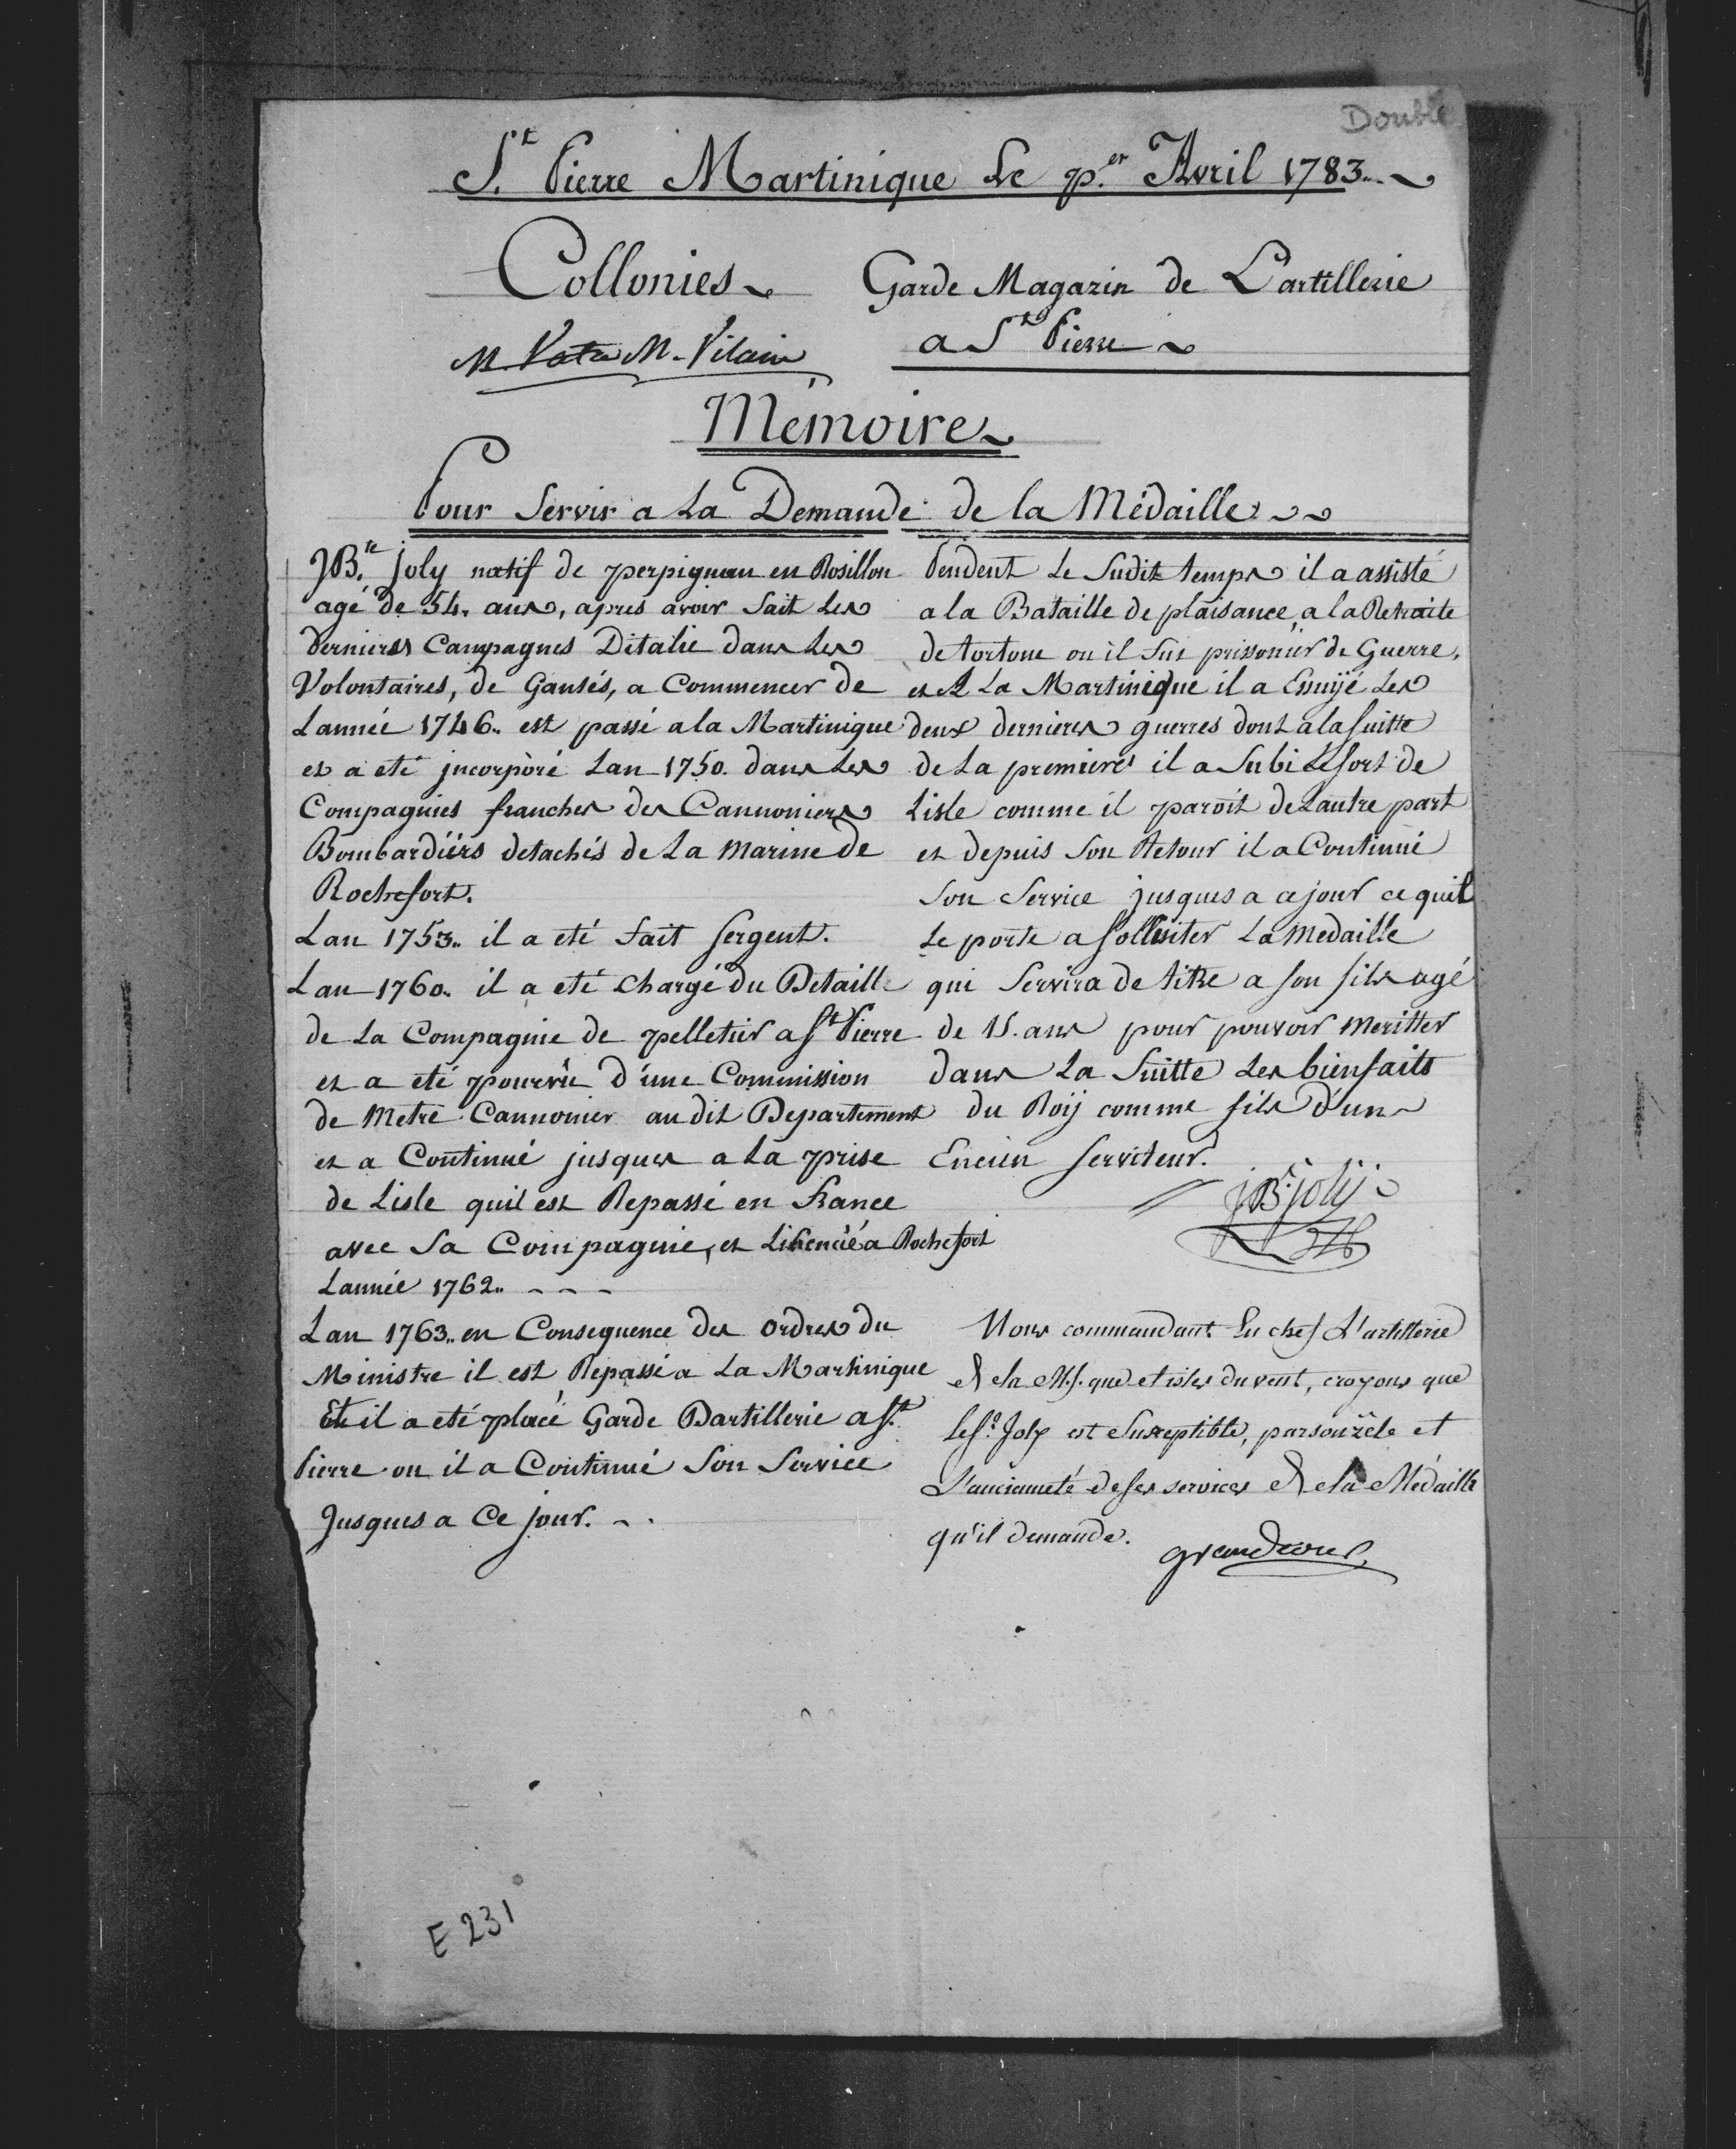 Double
S.t Pierre Martinique Le p.er Avril 1783..
Collonies
Garde Magazin de Lartillerie
a S.t Pierre
M. Vilain
Mémoire
Pour Servir a La Demande de la Médaille
JB.te joly natif de perpignan en Rosillon
agé de 54. ans, apres avoir fait Les
dernieres Campagnes Ditalie dans Les
Volontaires, de Gansés, a Commencer de
Lannée 1746.. est passé a la Martinique
et a eté jncorporé Lan 1750. dans Les
Compagnies franches des Cannoniers
Bombardiérs detachés de La Marine de
Rochefort.
Lan 1753.. il a eté fait sergent.
Lan 1760. il a eté chargé du Detaill
de La Compagnie de pelletier a St Pierre
et a eté pourvû d'une Commission
de Metre Cannonier au dit Departement
et a Continué jusques a La prise
de Lisle quil est Repassé en France
avec Sa Compagnie, et Licencié a Rochefort
Lannée 1762..
Lan 1763.. en Consequence des ordres du
Ministre il est Repassé a La Martinique
Et il a eté placé Garde Dartillerie a St
Pierre ou il a Continué Son Service
Jusques a Ce jour.
Pendent Le Sudit temps il a assisté
a la Bataille de plaisance, a la Retraite
de tortone ou il fut prissonier de Guerre,
et A La Martinique il a Essuÿé Les
deux dernieres guerres dont a la suitte
de La premiere il a Subi Le sort de
Lisle comme il paroit de Lautre part
et depuis Son Retour il a Continué
Son Service jusques a ce jour ce quil
Le porte a solliciter La Medaille
qui Servira de titre a son fils agé
de 15. ans pour pouvoir meritter
dans La Suitte Les bienfaits
du Roÿ comme fils d'un
Encien serviteur.
JB.joly
Nous commandant En chef L'artillerie
de la M.que et isles du vent, croyons que
le S.r Joly est Susceptible, par son zèle et
L'ancienneté de ses services de la Médaille
qu'il demande.
grandcour
E 231